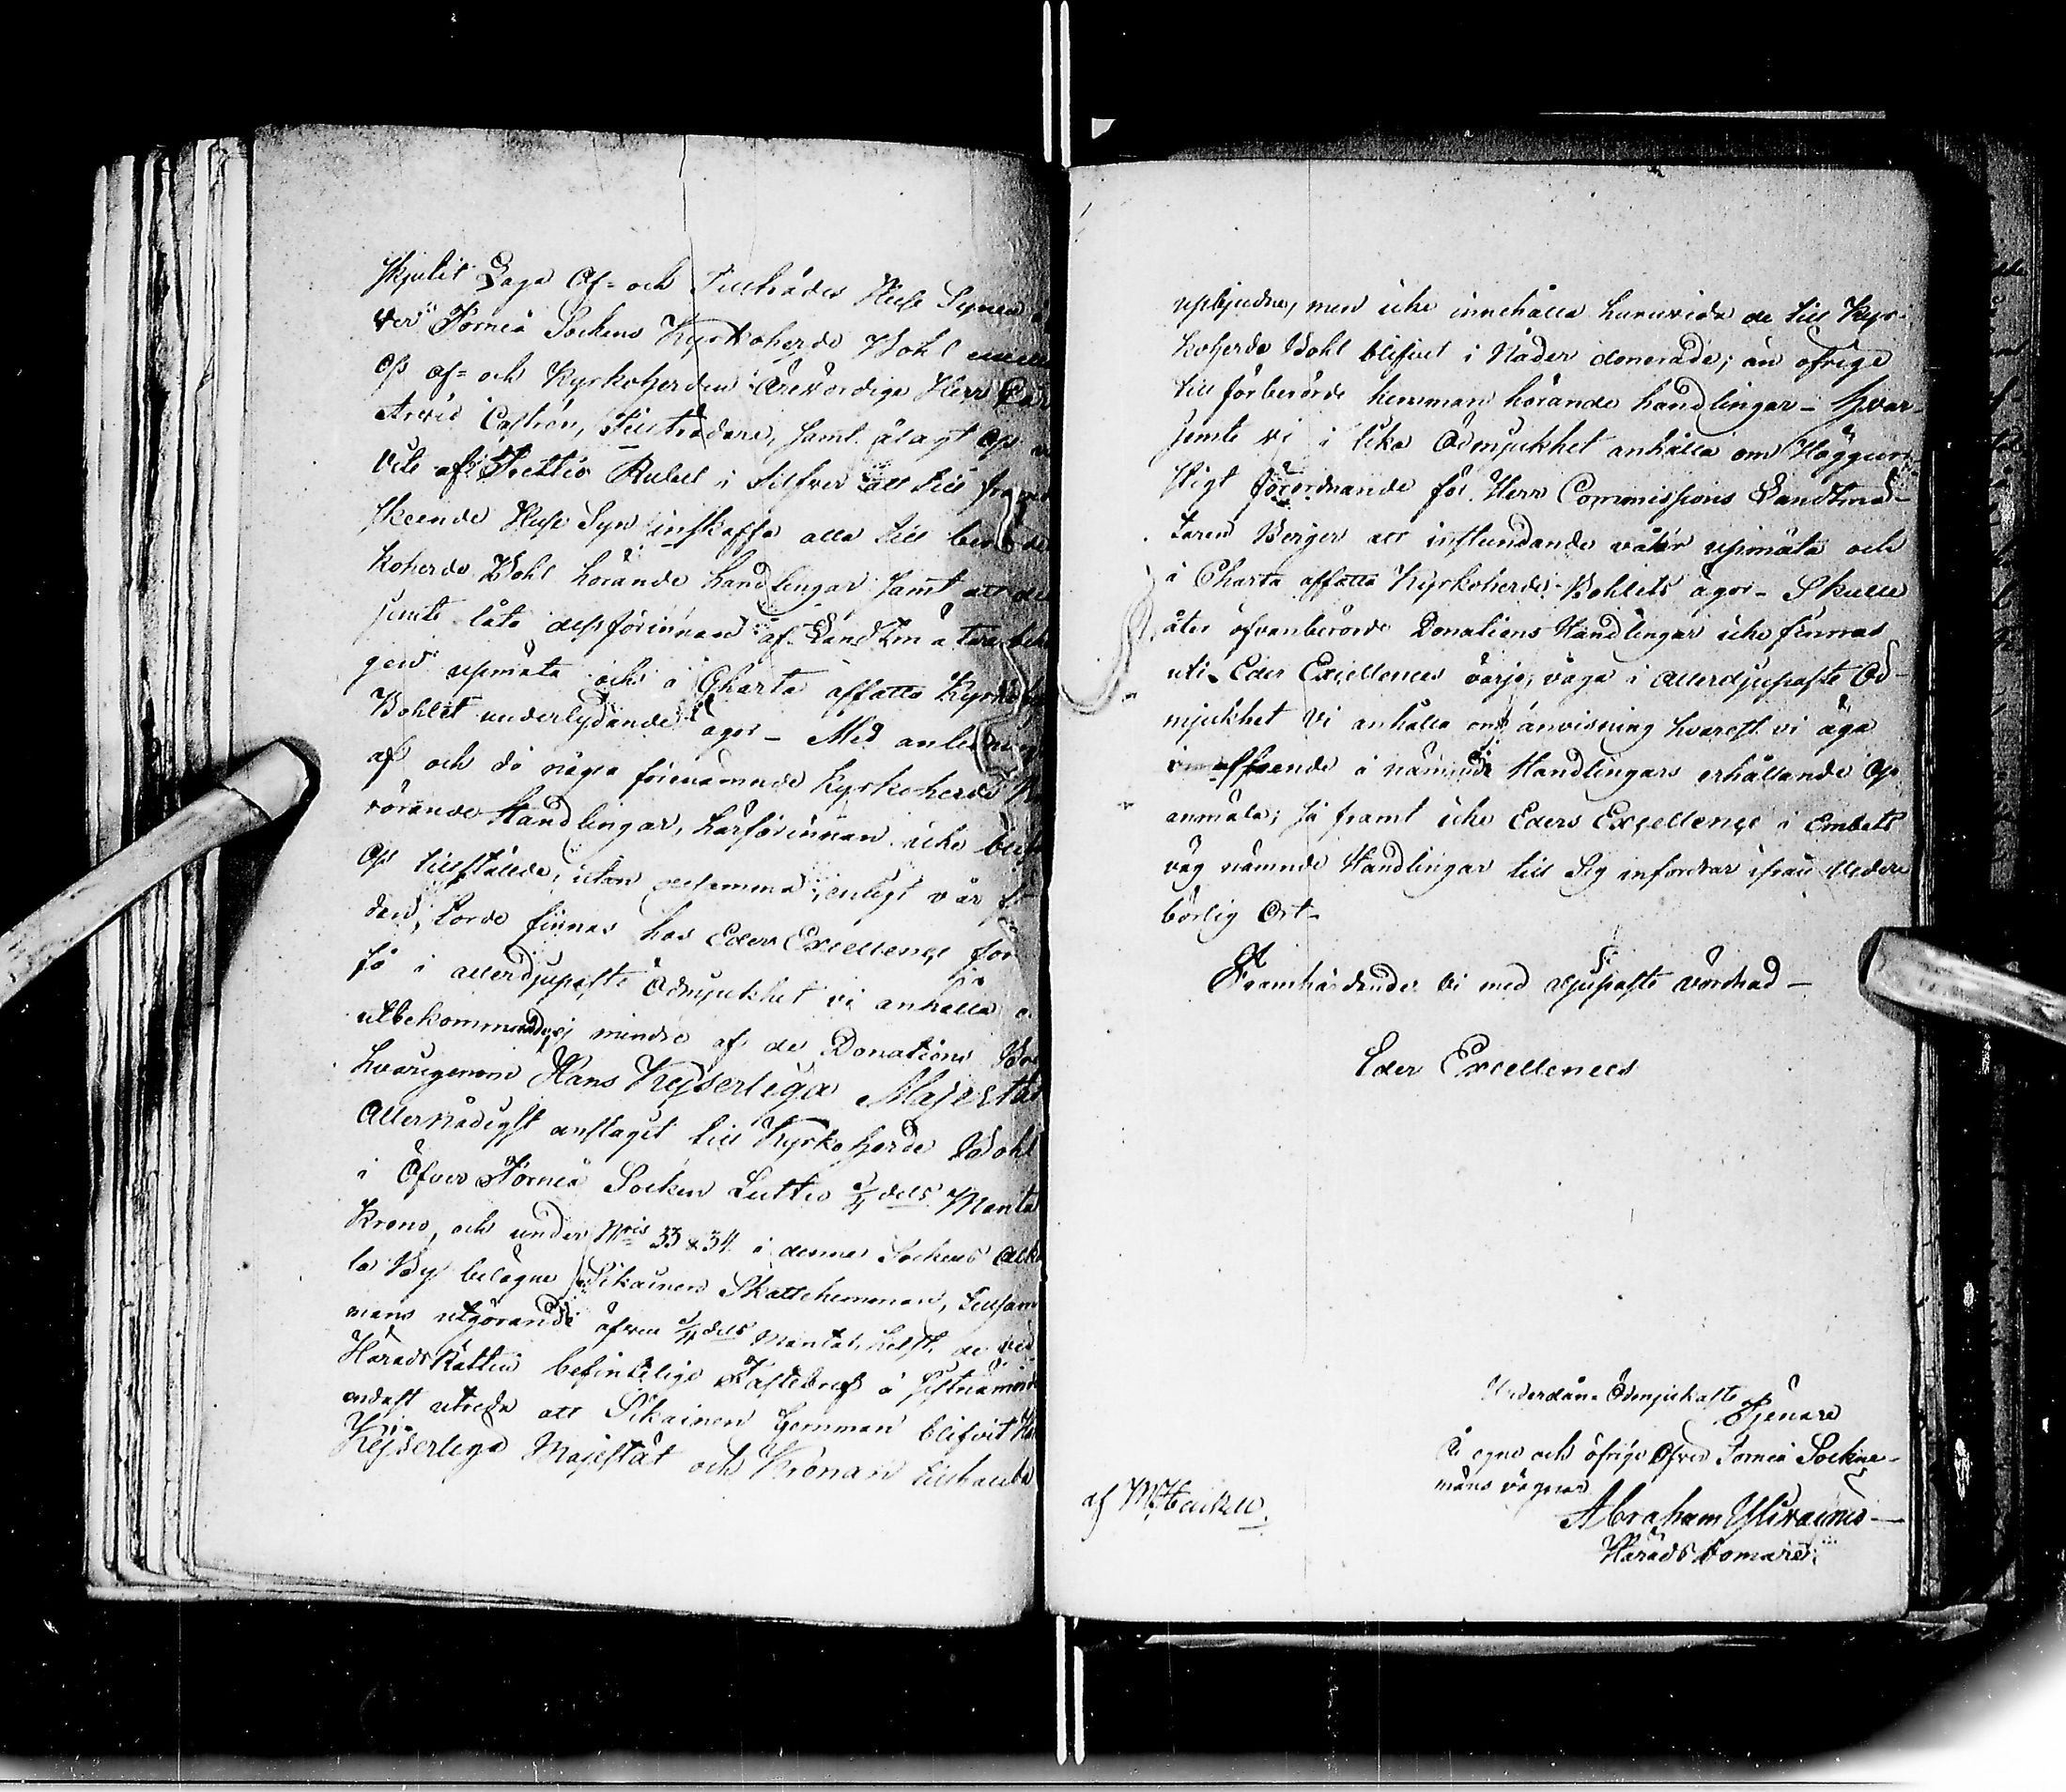 skjutit Laga Af= och Tillträdes Huse Synen å
ver Torneå Sockens Kyrkoherde Bohl emellan
Oss af= och Kyrkoherden Ärevördige Herr
Arvid Castrén, Tillträdare, samt ålagt Oss
Vite af Trettio Rubel i Silfver att till
skeende Huse Syn inskaffa alla till
koherde Bohl hörande handlingar samt
jemte låta dessförinnan af Landtmätare
gen upmäta och å Charta affatta Kyrko
Bohlet underlydande ägor – Med anledning
af och då några förenämnde Kyrkoherde
rörande Handlingar, härförinnan icke
Oss tillstälde, utan desamma, enligt vår
den, torde finnas hos Eders Excellence
så i allerdjupaste Ödmjukhet vi anhålla
utbekommande, ej mindre af de Donations
hvarigenom Hans Kejserliga Majestät
Allernådigst anslagit till Kyrkoherde Bohl
i Öfver Torneå Socken Luttio 3/4 dels Mantal
Krono, och under Nris 33 & 34 i denna Sockens
la By belägne Sikainen Skattehemman, tillsam
mans utgörande äfven 3/4 dels Mantal, helst de vid
Härads Rätten befintelige Fastebref å sistnämnde
endast utreda att Sikainen hemman blifvit
Kejserliga Majestät och Kronan
upbjudne, men icke innehålla huruvida de till Kyr-
koherde Bohl blifvit i Nåder donerade; än öfrige
till förberörde hemman hörande handlingar – hvar-
jemte vi i lika Ödmjukhet anhålla om Höggun-
stigt förordnande för Herr Commissions Landtmä-
taren Berger att instundande vår upmäta och
å Charta affatta Kyrkoherde Bohlets ägor – Skulle
åter ofvanberörde Donations Handlingar icke finnas
uti Eder Excellences värjo, våga i allerdjupaste Öd-
mjukhet Vi anhålla om anvisning hvarest vi äga
i afseende å nämnde Handlingars erhållande Oss
anmäla; så framt icke Eders Excellence i Embets
väg nämnde Handlingar till Sig infordrar ifrån Veder
börlig Ort –
Framhärdande vi med djupaste vördnad –
Eder Excellences
Underdån- Ödmjukaste
Tjenare
Å egne och öfrige Öfver Torneå Sockne-
mäns vägnar
Abraham
Härads Domare
af